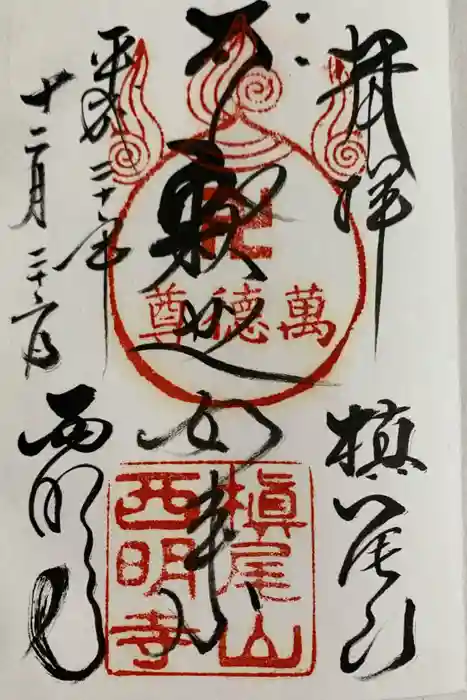 奉拝
槇尾山
釈迦如来
平成二十年
十二月二十六日
西明寺
卍
萬德尊
槇尾山
西明寺